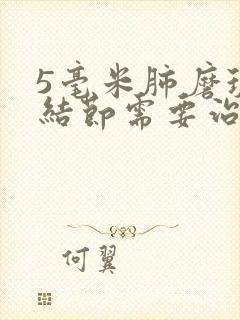 5毫米肺磨玻
結節需要治
何翼